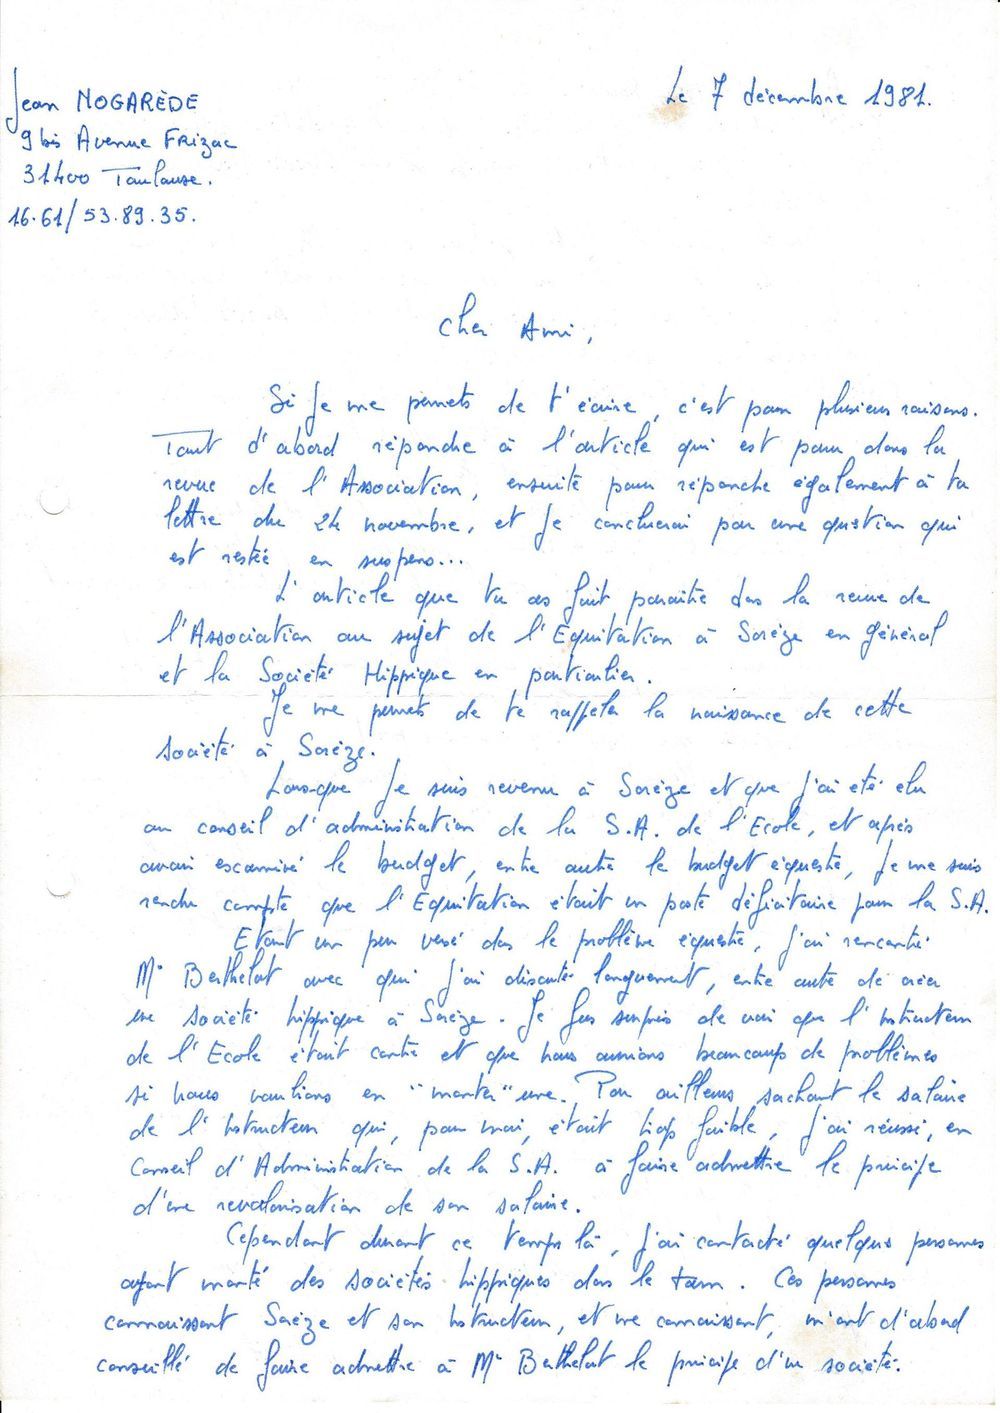 Jean NOGARÈDE
Le 7 décembre 1981.
9 bis Avenue FRIZAC
31400 Toulouse.
16.61/53.89.35.
Cher Ami,
Si je me permets de t'écrire, c'est pour plusieurs raisons.
Tout d'abord répondre à l'article qui est paru dans la
revue de l'Association, ensuite pour répondre également à ta
lettre du 24 novembre, et je conclurai par une question qui
est restée en suspens...
L'article que tu as fait paraître dans la revue de
l'Association au sujet de l'Equitation à Sorèze en général
et la Société Hippique en particulier.
Je me permets de te rappeler la naissance de cette
société à Sorèze.
Lorsque je suis revenu à Sorèze et que j'ai été élu
au conseil d'administration de la S.A. de l'Ecole, et après
avoir examiné le budget, entre autre le budget équestre, je me suis
rendu compte que l'Equitation était un poste déficitaire pour la S.A.
Etant un peu versé dans le problème équestre, j'ai rencontré
Mr Berthelot avec qui j'ai discuté longuement, entre autre de créer
une société hippique à Sorèze. Je fus surpris de voir que l'Instructeur
de l'Ecole était contre et que nous aurions beaucoup de problèmes
si nous voulions en "monter" une. Par ailleurs, sachant le salaire
de l'Instructeur qui, pour moi, était trop faible, j'ai réussi, en
Conseil d'Administration de la S.A. à faire admettre le principe
d'une revalorisation de son salaire.
Cependant durant ce temps là, j'ai contacté quelques personnes
ayant monté des sociétés hippiques dans le tarn. Ces personnes
connaissant Sorèze et son Instructeur, et me connaissant, m'ont d'abord
conseillé de faire admettre à Mr Berthelot le principe d'une société.